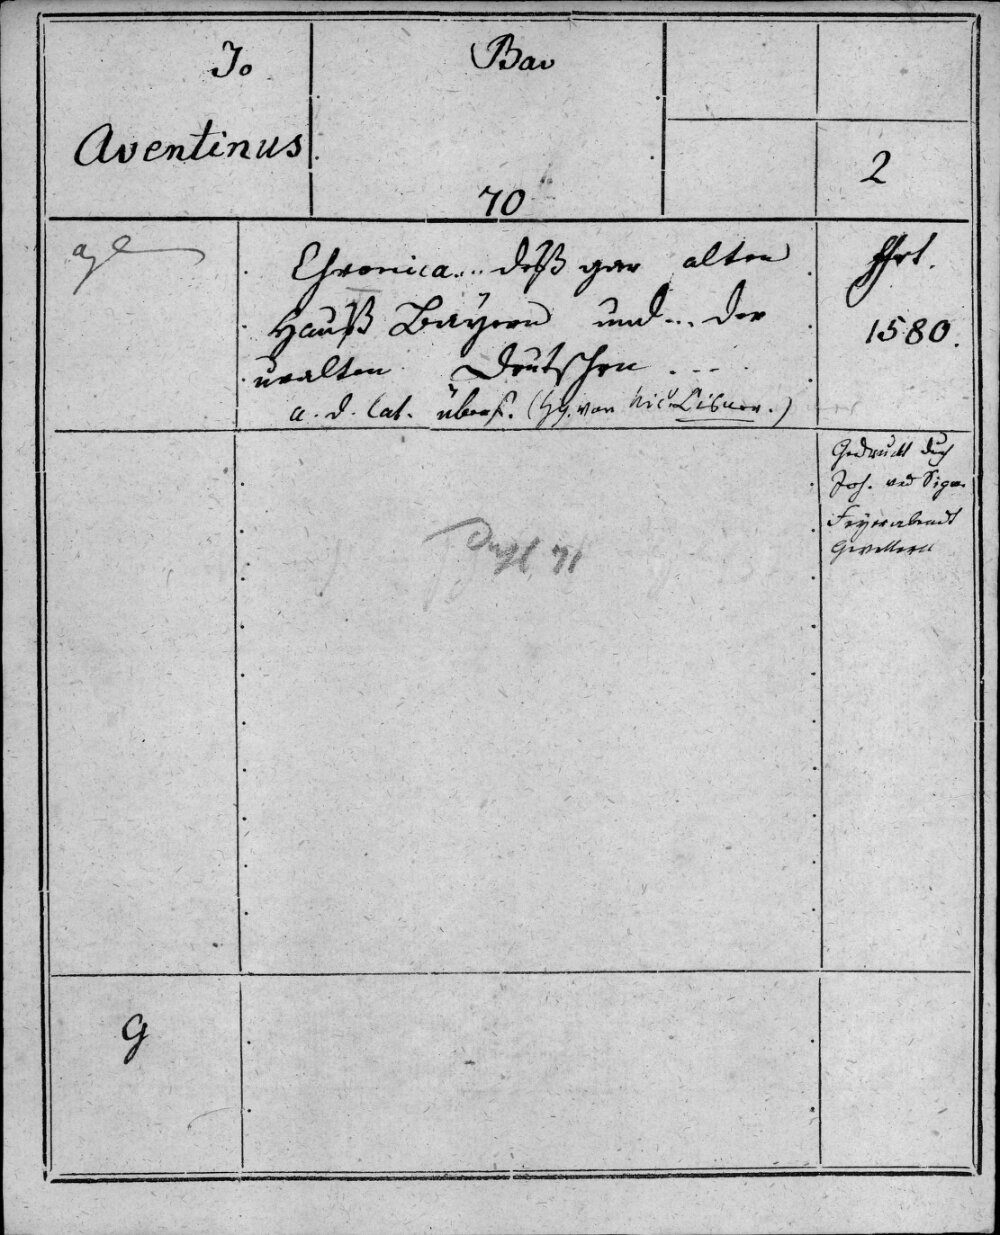 Jo
Aventinus
Bav
70
2
Chronica... deß gar alten
Hauß Bayern und... der
uralten Deutschen ....
a. d. Lat. übers. (Hg. von Nic. Cisner.)
Ffrt.
1580.
Gedruckt durch
Joh. und Sigm.
Feyerabendt
Dupl. 71
G